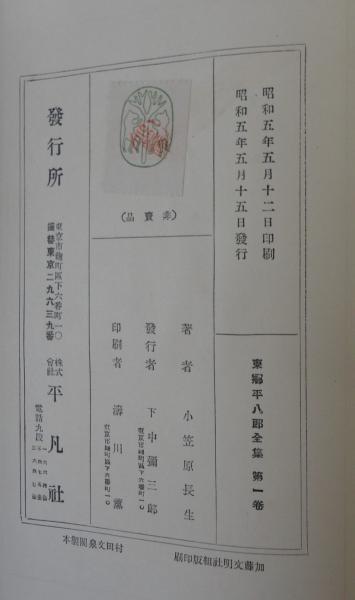 昭和五年五月十二日印刷
昭和五年五月十五日發行
東郷平八郎全集 第一卷
(非賣品)
著者 小笠原長生
發行者 下中彌三郎
東京市麹町區下六番町一〇
印刷者 濤川薰
東京市麹町區下六番町一〇
發行所
東京市麹町區下六番町一〇
振替東京二九六三九番
株式會社 平凡社
電話九段
加藤文明社組版印刷
村田文泉閣製本